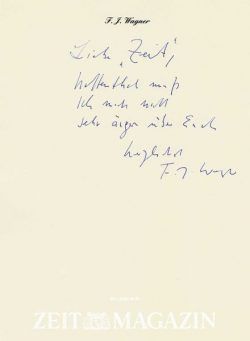 F. J. Wagner
Liebe „Zeit“,
hoffentlich muß
ich mich nicht
sehr ärgern über Euch
herzlichst
F. J. Wagner
ZEIT MAGAZIN